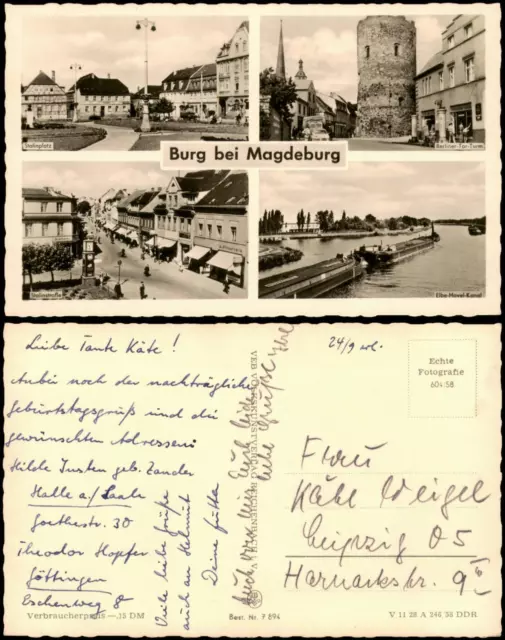 Stalinplatz
Berliner-Tor-Turm
Burg bei Magdeburg
Stalinstraße
Elbe-Havel-Kanal
Liebe Tante Käte!
Anbei noch der nachträgliche
Geburtstagsgruß und die
gewünschten Adressen:
Hilde Justen geb. Zander
Halle a/Saale
Goethestr. 30
Theodor Hopfer
Göttingen
Eschenweg 8
Viele liebe Grüße
auch an Helmut
Deine Jutta
Auch von mir Euch beiden
liebe Grüße
Verbraucherpreis —,15 DM
VEB VOLKSKUNSTVERLAG REICHENBACH
Best. Nr. P 894
24/9
Echte
Fotografie
604/58
Frau
Käte Weigel
Leipzig O5
Harnackstr. 9
V 11 28 A 246/58 DDR